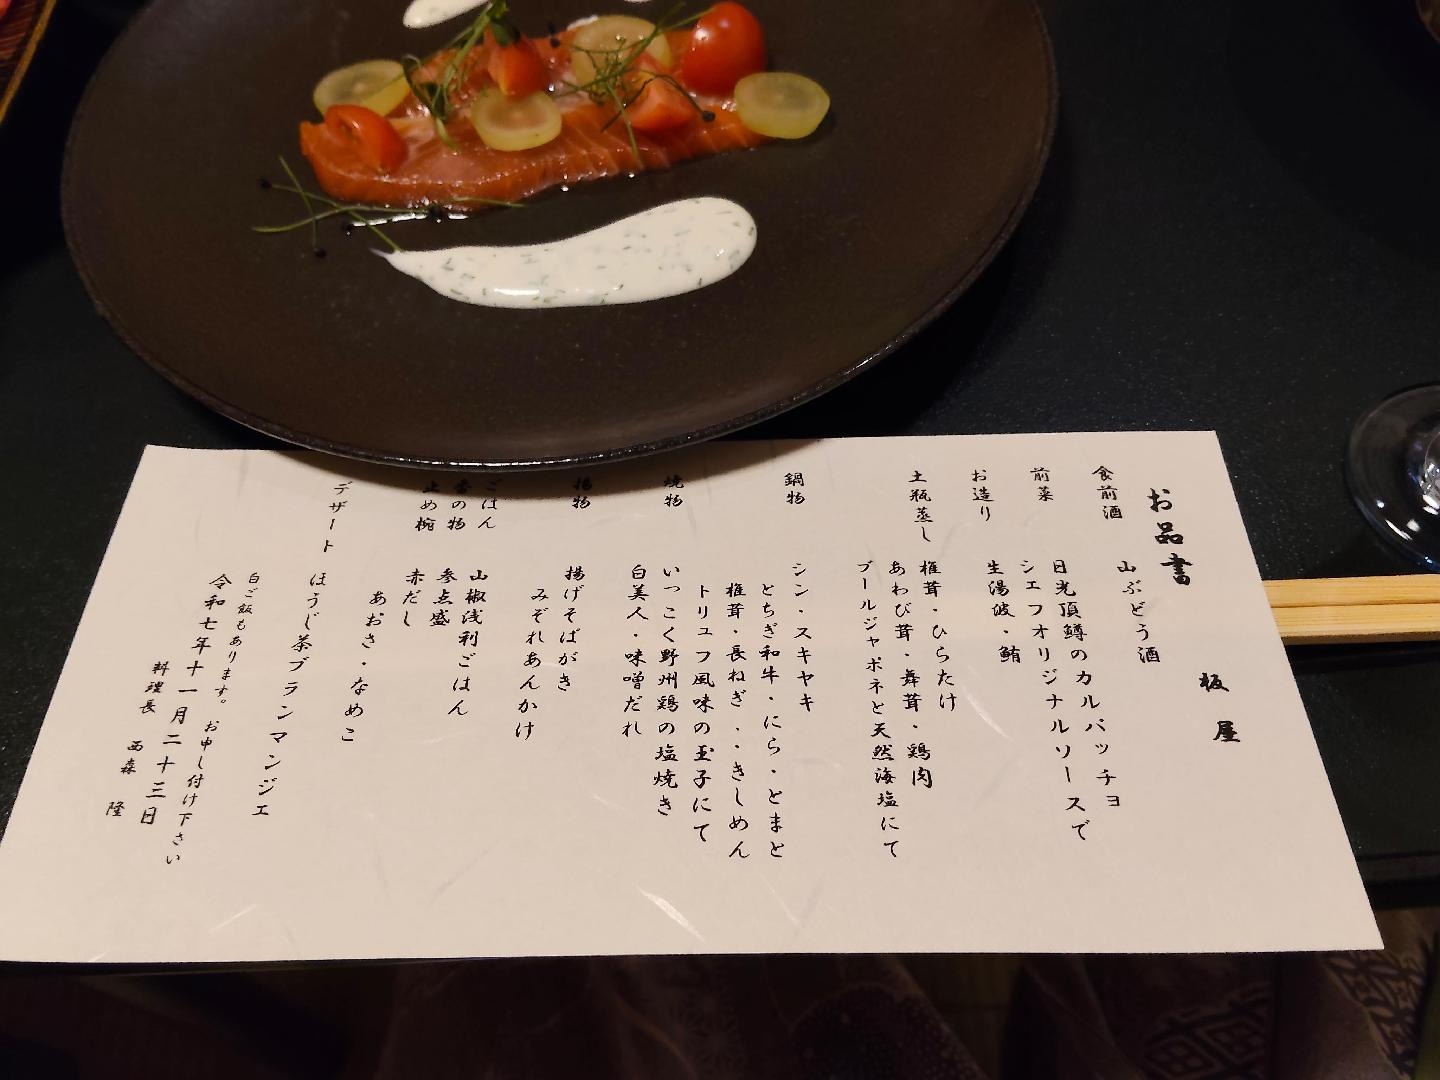 お品書
板屋
食前酒
山ぶどう酒
前菜
日光頂鱒のカルパッチョ
シェフオリジナルソースで
お造り
生湯波・鮪
土瓶蒸し
椎茸・ひらたけ
あわび茸・舞茸・鶏肉
ブールジャポネと天然海塩にて
鍋物
シン・スキヤキ
とちぎ和牛・にら・とまと
椎茸・長ねぎ・・きしめん
トリュフ風味の玉子にて
焼物
いっこく野州鶏の塩焼き
白美人・味噌だれ
揚物
揚げそばがき
みぞれあんかけ
ごはん
山椒浅利ごはん
香の物
参点盛
止め椀
赤だし
あおさ・なめこ
デザート
ほうじ茶ブランマンジェ
白ご飯もあります。お申し付け下さい
令和七年十一月二十三日
料理長 西森 隆